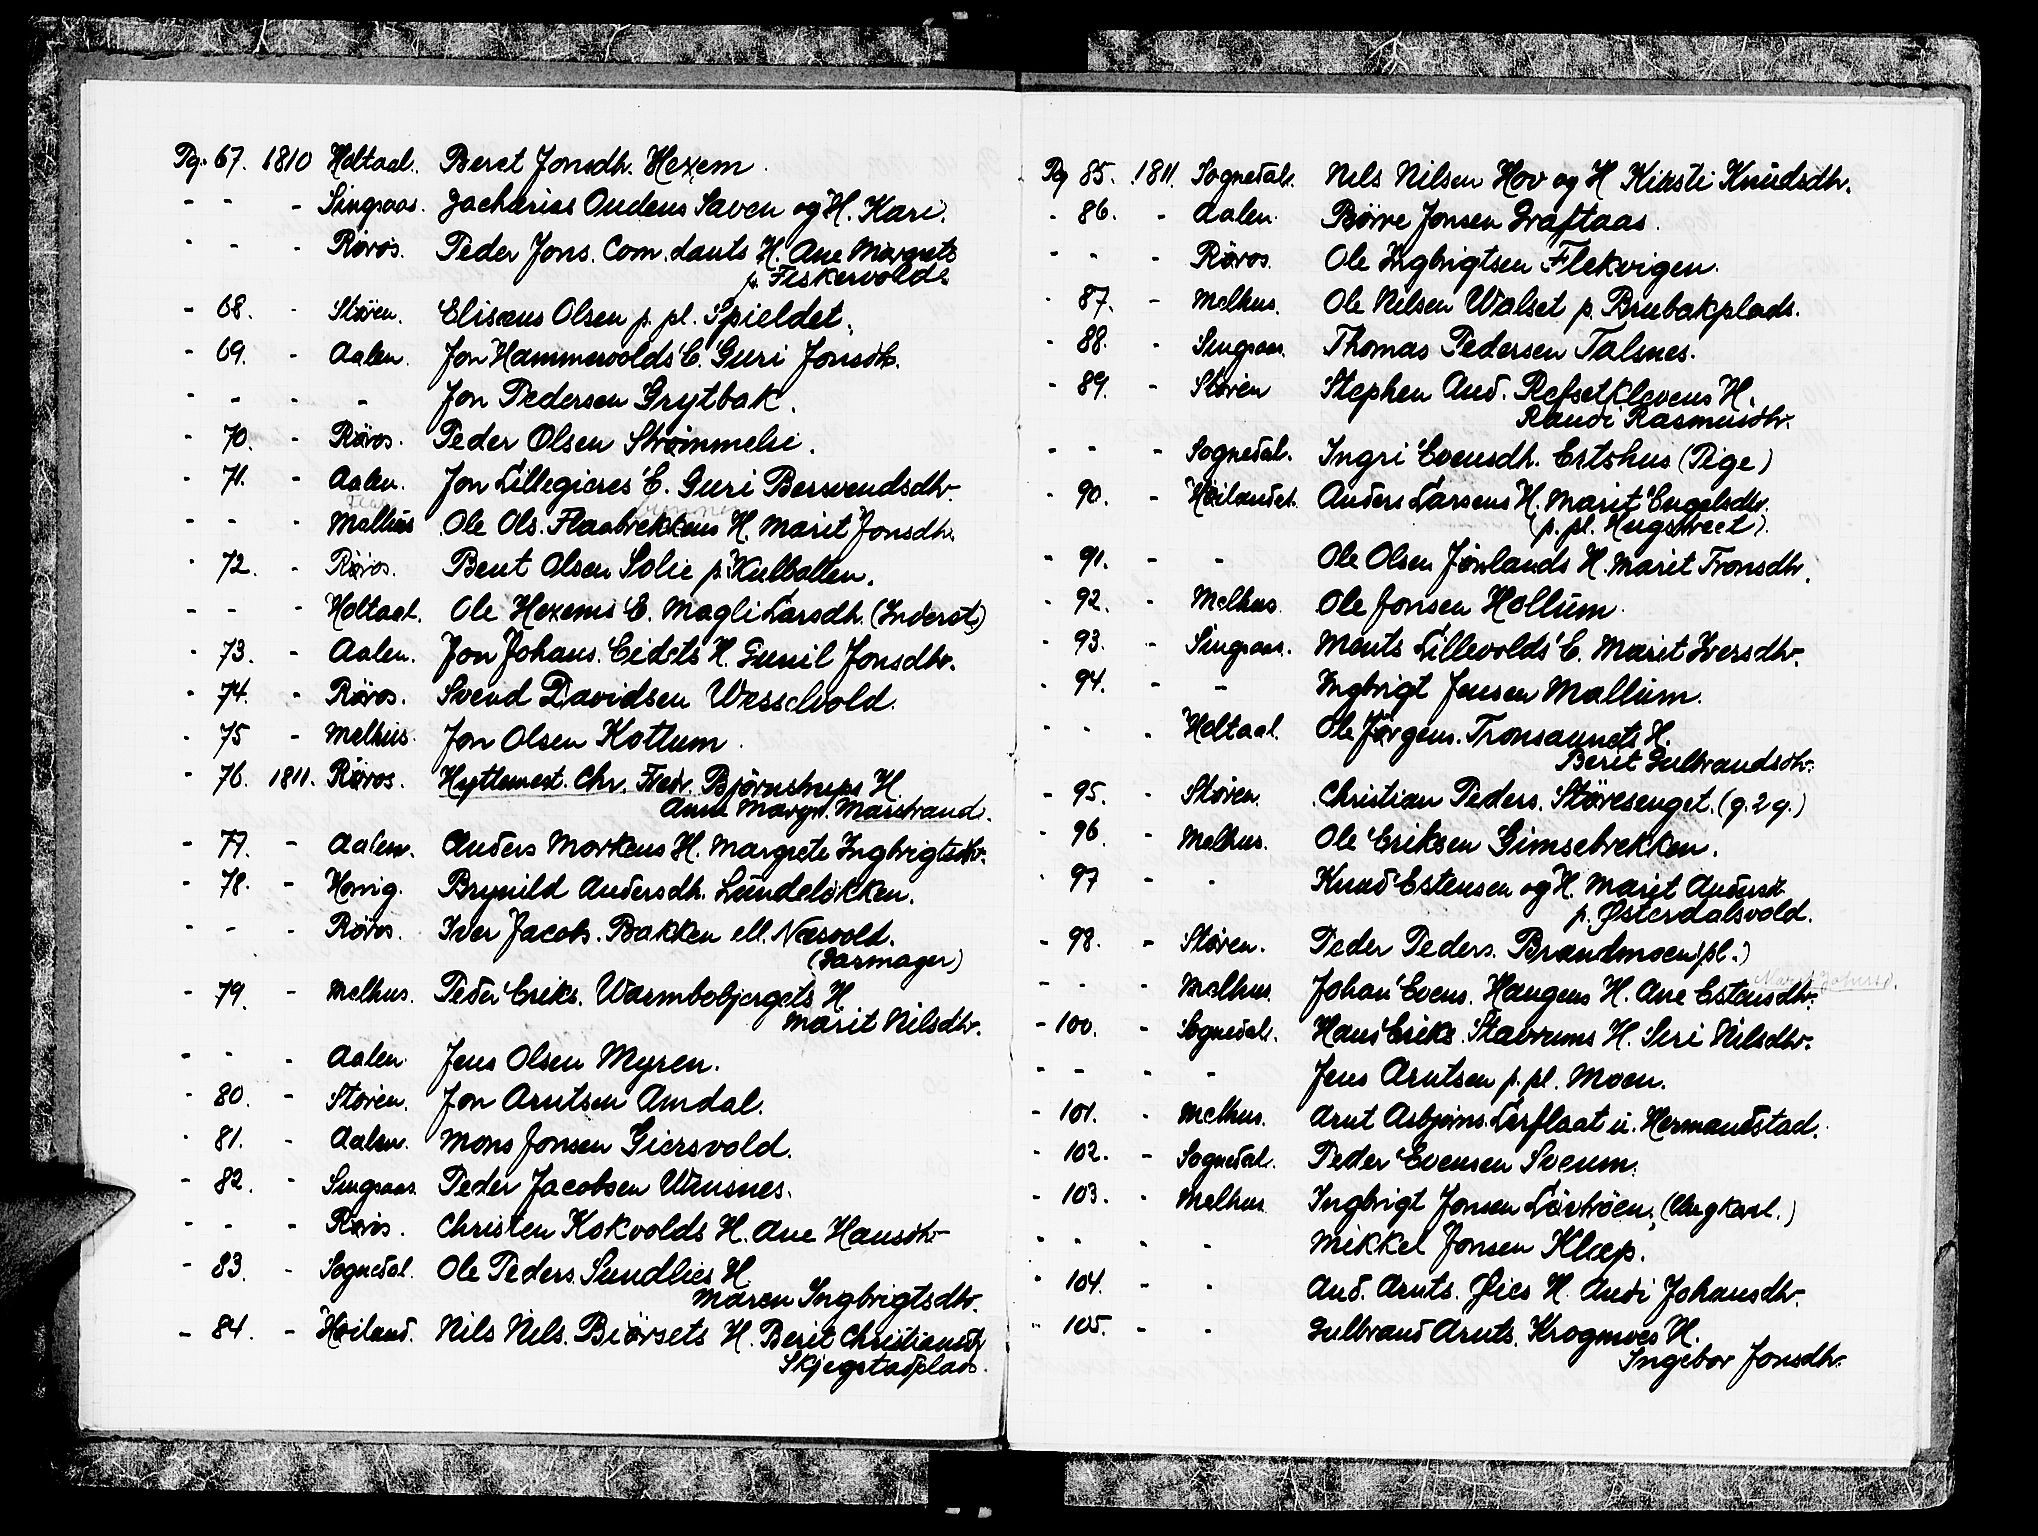 Pg. 67. 1810 Holtaal. Beret Jonsdh. Hexem.
- - - Singsaas. Zacharias Oudens Saven og H. Kari.
- - - Røros. Peder Jons. Com.dants H. Ane Margrets
p. Fiskervold.
- 68. - Støren. Elisæus Olsen p. pl. Spieldet.
- 69. - Aalen. Jon Hammervolds E. Guri Jonsdh.
- - - - Jon Pedersen Grytbak.
- 70. - Røros. Peder Olsen Strømmelie.
- 71. - Aalen. Jon Lillegieres E. Guri Bersvendsdh.
- - - Melhus Ole Ols. Flaabrekkens H. Marit Jonsdh.
- 72. - Røros. Bent Olsen Solie p. Kulbotten.
- - - Holtaal. Ole Hexems E. Magli Larsdh. (Inderst)
- 73. - Aalen. Jon Johans. Eidets H. Gunil Jonsdh.
- 74. - Røros. Svend Davidsen Wesselvold.
- 75 - Melhus. Jon Olsen Kottum.
- 76. 1811. Røros. Hyttemest. Chr. Fredr. Bjørnstrups H.
Anne Margr. Marstrand.
- 77. - Aalen. Anders Morkens H. Margrete Ingbrigtsdh.
- 78. - Horrig. Brynild Andersdh. Lundeløkken.
- - - Røros. Iver Jacobs. Bakken ell. Næsvold.
(Garmager)
- 79. - Melhus. Peder Eriks. Warmbobjergets H
Marit Nilsdh.
- - - Aalen Jens Olsen Myren.
- 80. - Støren. Jon Arntsen Amdal.
- 81. - Aalen. Mons Jonsen Giersvold.
- 82. - Singsaas. Peder Jacobsen Wensnes.
- - - Røros. Christen Kokvolds H. Ane Hansdh.
- 83. - Sognedal. Ole Peders. Sundlies H.
Maren Ingbrigtsdh.
- 84. - Høiland. Nils Nils. Biørsets H. Berit Christiansdh.
Skjegstadplads.
Pg 85. 1811. Sognedal. Nils Nilsen Hov og H Kirsti Knudsdh.
- 86. - Aalen. Børre Jonsen Graftaas.
- - - Røros. Ole Ingbrigtsen Flekvigen.
- 87. - Melhus. Ole Nilsen Walset p. Brubakplads.
- 88. - Singsaas. Thomas Pedersen Talsnes.
- 89. - Støren Stephen And. Refsetklevens H.
Randi Rasmusdh.
- - - Sognedal. Ingri Evensdh. Ertshus (Pige)
- 90. - Høilandet. Anders Larsens H. Marit Engelsdh.
(p. pl. Hugstveet).
- 91. - - Ole Olsen Jønlands H. Marit Tronsdh.
- 92. - Melhus. Ole Jonsen Hollum.
- 93. - Singsaas. Ments Lillevolds E. Marit Iversdh.
- 94. - - Ingbrigt Jensen Mallum.
- - - Holtaal Ole Jørgens. Tronsaunets H.
Berit Gulbrandsdh.
- 95. - Støren. Christian Peders. Støresenget. (g. 2 g.)
- 96 - Melhus. Ole Eriksen Gimsebrekken.
- 97 - - Knud Estensen og H. Marit Andersd.
p. Østerdalsvold.
- 98. - Støren. Peder Peders. Brandmoen (pl.)
- - - Melhus. Johan Evens. Haugens H. Ane Estensdh.
- 100. - Sognedal. Hans Eriks. Stavrums H. Siri Nilsdh.
- - - - Jens Arntsen p. pl. Moen.
- 101. - Melhus. Arnt Asbjørns. Lerflaat u. Hermanstad.
- 102. - Sognedal. Peder Evensen Sveum.
- 103. - Melhus Ingbrigt Jonsen Løvrøen, (Ungkarl.)
- - - - Mikkel Jonsen Klæp.
- 104. - - And. Arnts. Øies H. Andi Johansdh.
- 105. - - Gulbrand Arnts. Krogmoes H.
Ingebor Jonsdh.